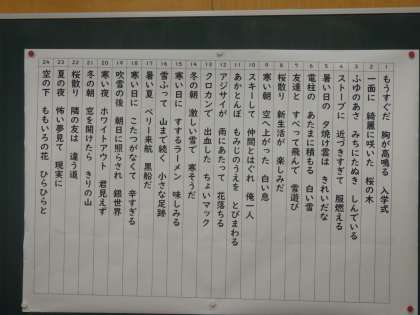 1 もうすぐだ 胸が高鳴る 入学式
2 一面に 綺麗に咲いた 桜の木
3 ふゆのあさ みちにたぬき しんでいる
4 ストーブに 近づきすぎて 服燃える
5 暑い日の 夕焼け雲は きれいだな
6 電柱の あたまに積もる 白い雪
7 友達と すべって飛んで 雪遊び
8 桜散り 新生活が 楽しみだ
9 寒い朝 空へ上がった 白い息
10 スキーして 仲間とはぐれ 俺一人
11 あかとんぼ もみじのうえを とびまわる
12 アジサイが 雨にあたって 花落ちる
13 クロカンで 出血した ちょいマック
14 冬の朝 激しい雪で 寒そうだ
15 寒い日に すするラーメン 味しみる
16 雪ふって 山まで続く 小さな足跡
17 暑い夏 ペリー来航 黒船だ
18 寒い日に こたつがなくて 辛すぎる
19 吹雪の後 朝日に照らされ 銀世界
20 寒い夜 ホワイトアウト 君見えず
21 冬の朝 窓を開けたら きりの山
22 桜散り 隣の友は 違う道
23 夏の夜 怖い夢見て 現実に
24 空の下 ももいろの花 ひらひらと